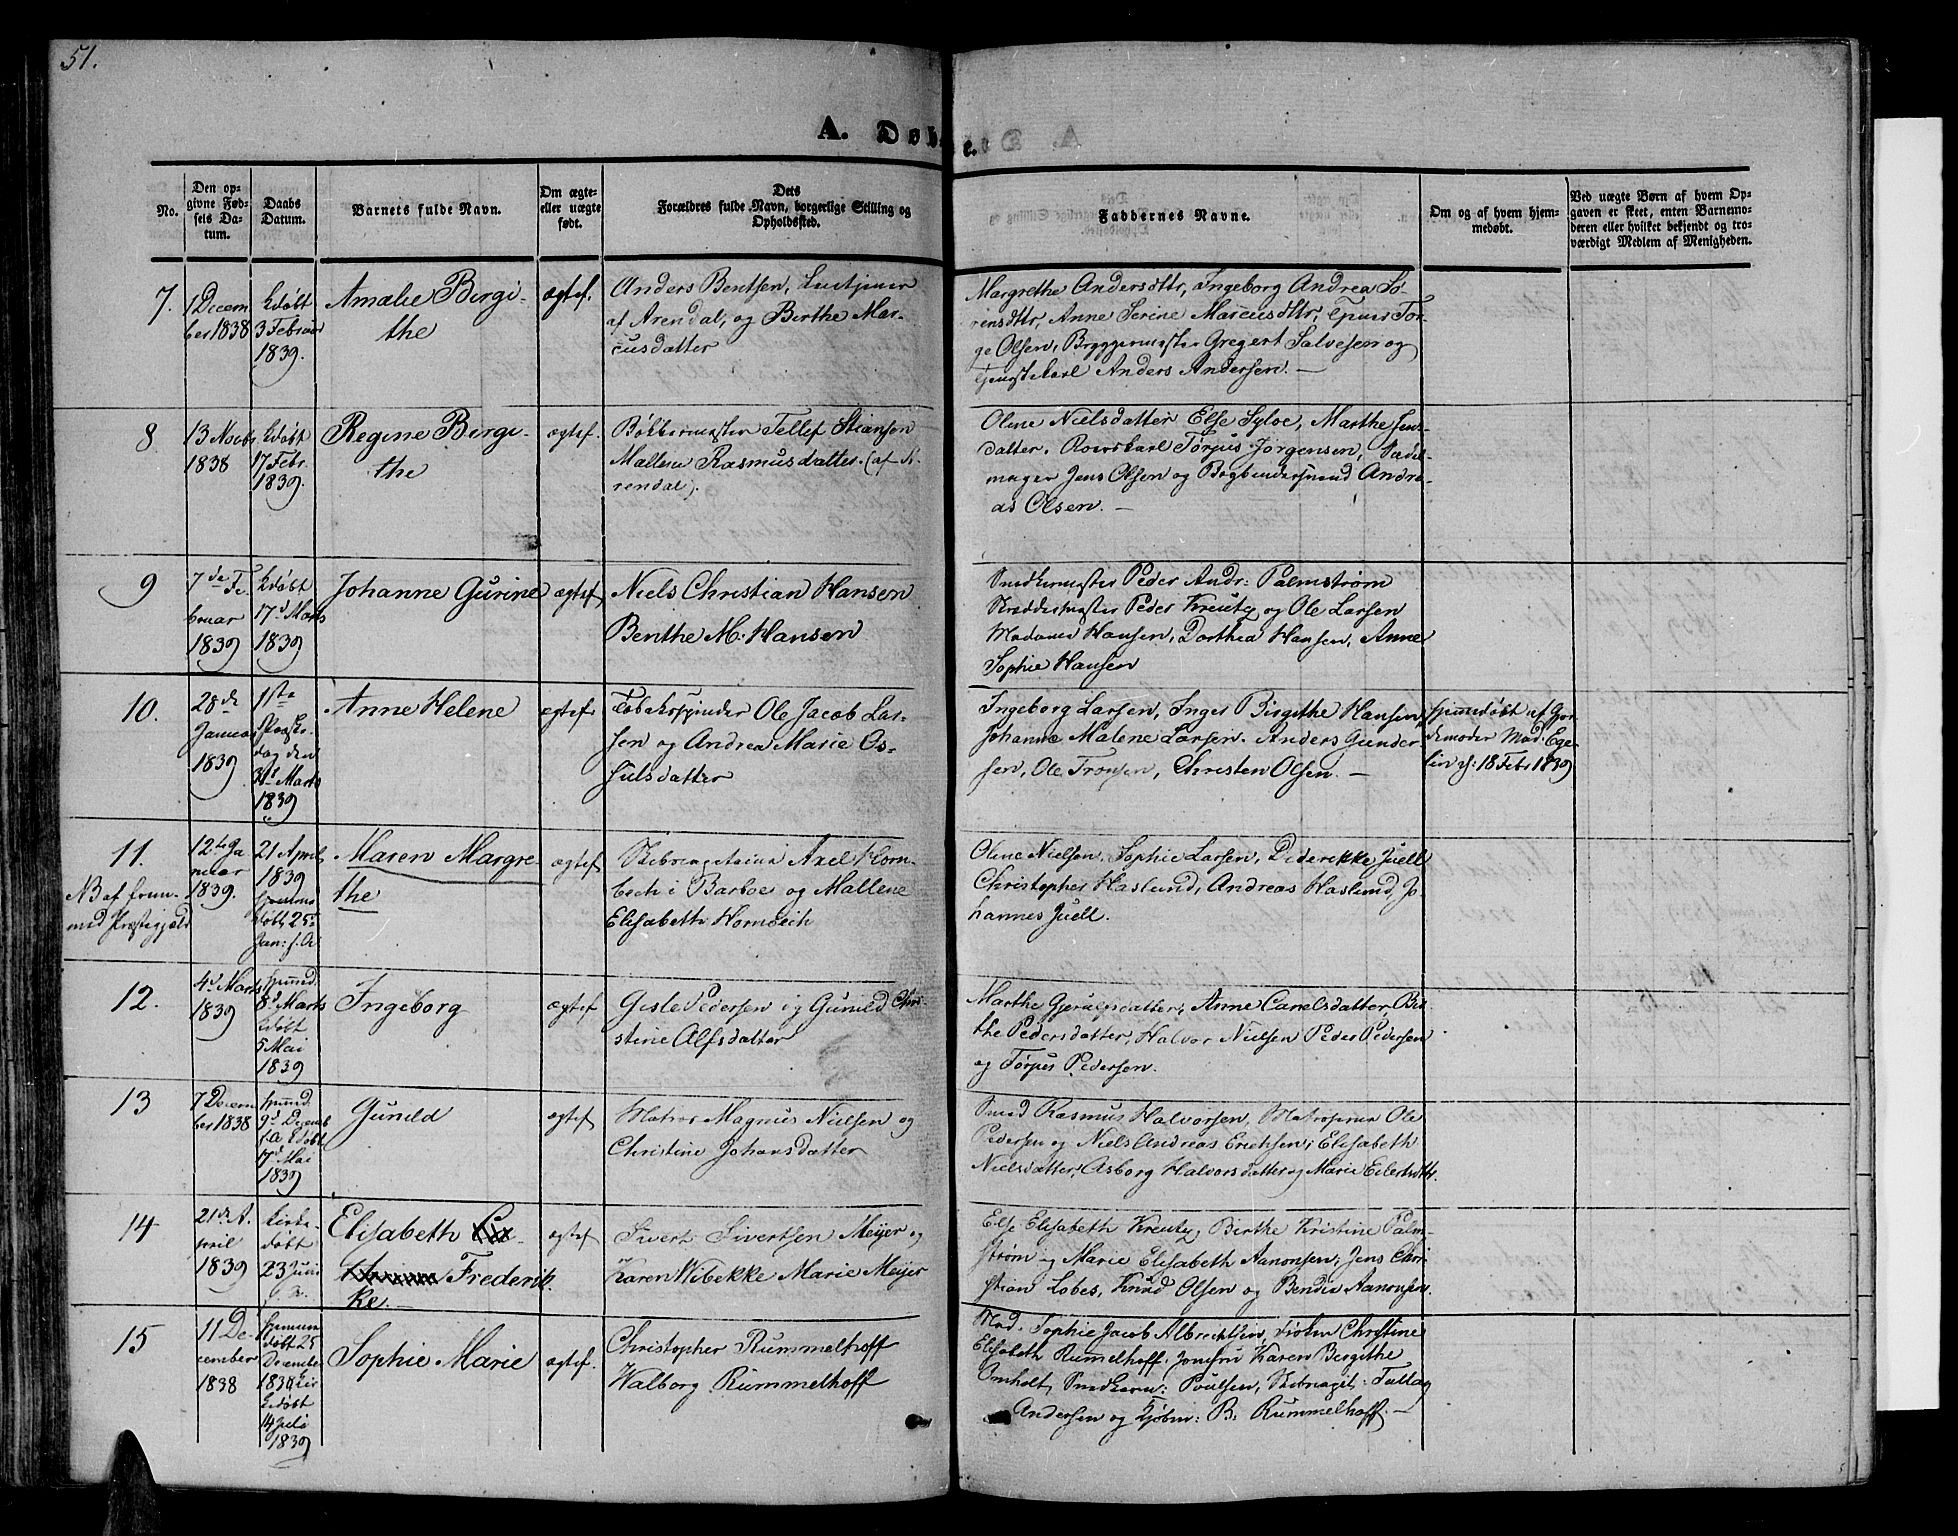 51.
A. Døbte.
No.
Den op-
givne Fød-
sels Da-
tum.
Daabs
Datum.
Barnets fulde Navn.
Om ægte-
eller uægte
født.
Dets
Forældres fulde Navn, borgerlige Stilling og
Opholdssted.
Faddernes Navne.
Om og af hvem hjem-
medøbt.
Ved uægte Børn af hvem Op-
gaven er skeet, enten Barnemo-
deren eller hvilket bekjendt og tro-
værdigt Medlem af Menigheden.
7.
1 Decem
ber 1838
kdøbt
3 Februar
1839.
Amalie Birgi-
the
ægtef.
Anders Bentsen,
af Arendal, og Birthe Mar-
cusdatter
Margrethe Andersdttr, Ingeborg Andrea Sø-
rensdttr, Anne Serine Marcusdttr, Tor-
ge Olsen, Bryggermester Gregert Salvesen og
Tjenestekarl Anders Andersen. —
8
13 Novbr
1838
kdøbt
17 Febr.
1839.
Regine Birgi-
the
ægtef.
Bøkkermester Tellef Stiansen
Mallene Rasmusdatter. (af A-
rendal).
Olene Nielsdatter Else Sylve, Marthe Jens-
datter, Roerskarl Tørpus Jørgensen, Sadel-
mager Jens Olsen og Bogbindersvend Andre-
as Olsen. —
9
7de Fe
bruar
1839
kdøbt
17d Marts
1839
Johanne Gurine
ægtef
Niels Christian Hansen
Benthe M. Hansen
Snedkermester Peder Andr: Palmstrøm
Skreddermester Peder Kreutz og Ole Larsen
Madame Hansen, Dorthea Hansen, Anne
Sophie Hansen
10.
28de
Januar
1839
1ste
Paaske-
dag den
31d Marts
1839
Anne Helene
ægtef.
Tobakspinder Ole Jacob Lar-
sen og Andrea Marie Os-
sulsdatter
Ingeborg Larsen, Inger Birgithe Hansen,
Johanne Malene Larsen. Anders Gunder-
sen, Ole Tronsen, Christen Olsen. —
hjemmdøbt af Gjor-
demoder Mad. Ege-
lin d: 18 Febr 1839
11.
NB af frem-
med Præstegjeld
12te Ja
nuar
1839.
21 April
1839
hjemme
døbt 25d
Jan: s. A
Maren Margre-
the
ægtef
Skibscapitain Axel Horn-
bech i Barboe og Mallene
Elisabeth Hornbech
Olene Nielsen, Sophie Larsen, Diderikke Juell
Christopher Haslund, Andreas Haslund, Jo
hannes Juell.
12.
4d Marts
1839
hjmmd.
8d Marts
kdøbt
5 Mai
1839
Ingeborg
ægtef
Gisle Pedersen og Gunild Chri-
stine Alfsdatter
Marthe Gjerulfsdatter, Anne Carelsdatter, Bir-
the Pedersdatter, Halvor Nielsen Peder Pedersen
og Tørpus Pedersen.
13
7 Decem
ber 1838
hjmmd.
9d Decemb
s. A kdøbt
17d Mai
1839
Gunild
ægtef
Matros Magnus Nielsen og
Christine Johansdatter
Smed Rasmus Halvorsen, Matroserne Ole
Pedersen og Niels Andreas Erichsen; Elisabeth
Nielsdatter, Asborg Halvorsdatter og Marie Eilertsdttr.
14
21de A.
pril
1839
kirke-
døbt
23 Juni
s. A.
Elisabeth
Frederik
ke.
ægtef
Sivert Sivertsen Meijer og
Karen Wibekke Marie Meijer
Else Elisabeth Kreutz, Birthe Kristine Palm-
strøm og Marie Elisabeth Aanonsen; Jens Chri-
stian Lobes, Knud Olsen og Bendix Aanonsen.
15
11 De-
cember
1838
hjemme
døbt 25
December
1838 kir
kedøbt
14 Juli
1839
Sophie Marie
ægtef.
Christopher Rummelhoff
Walborg Rummelhoff
Mad. Sophie Jacob Albrechtsen, Frøken Christine
Elisabeth Rummelhoff, Jomfru Karen Birgithe
Omholt, Snedkerm: Poulsen, Skibscapit. Tallag
Andersen og Kjøbm: B. Rummelhoff. —